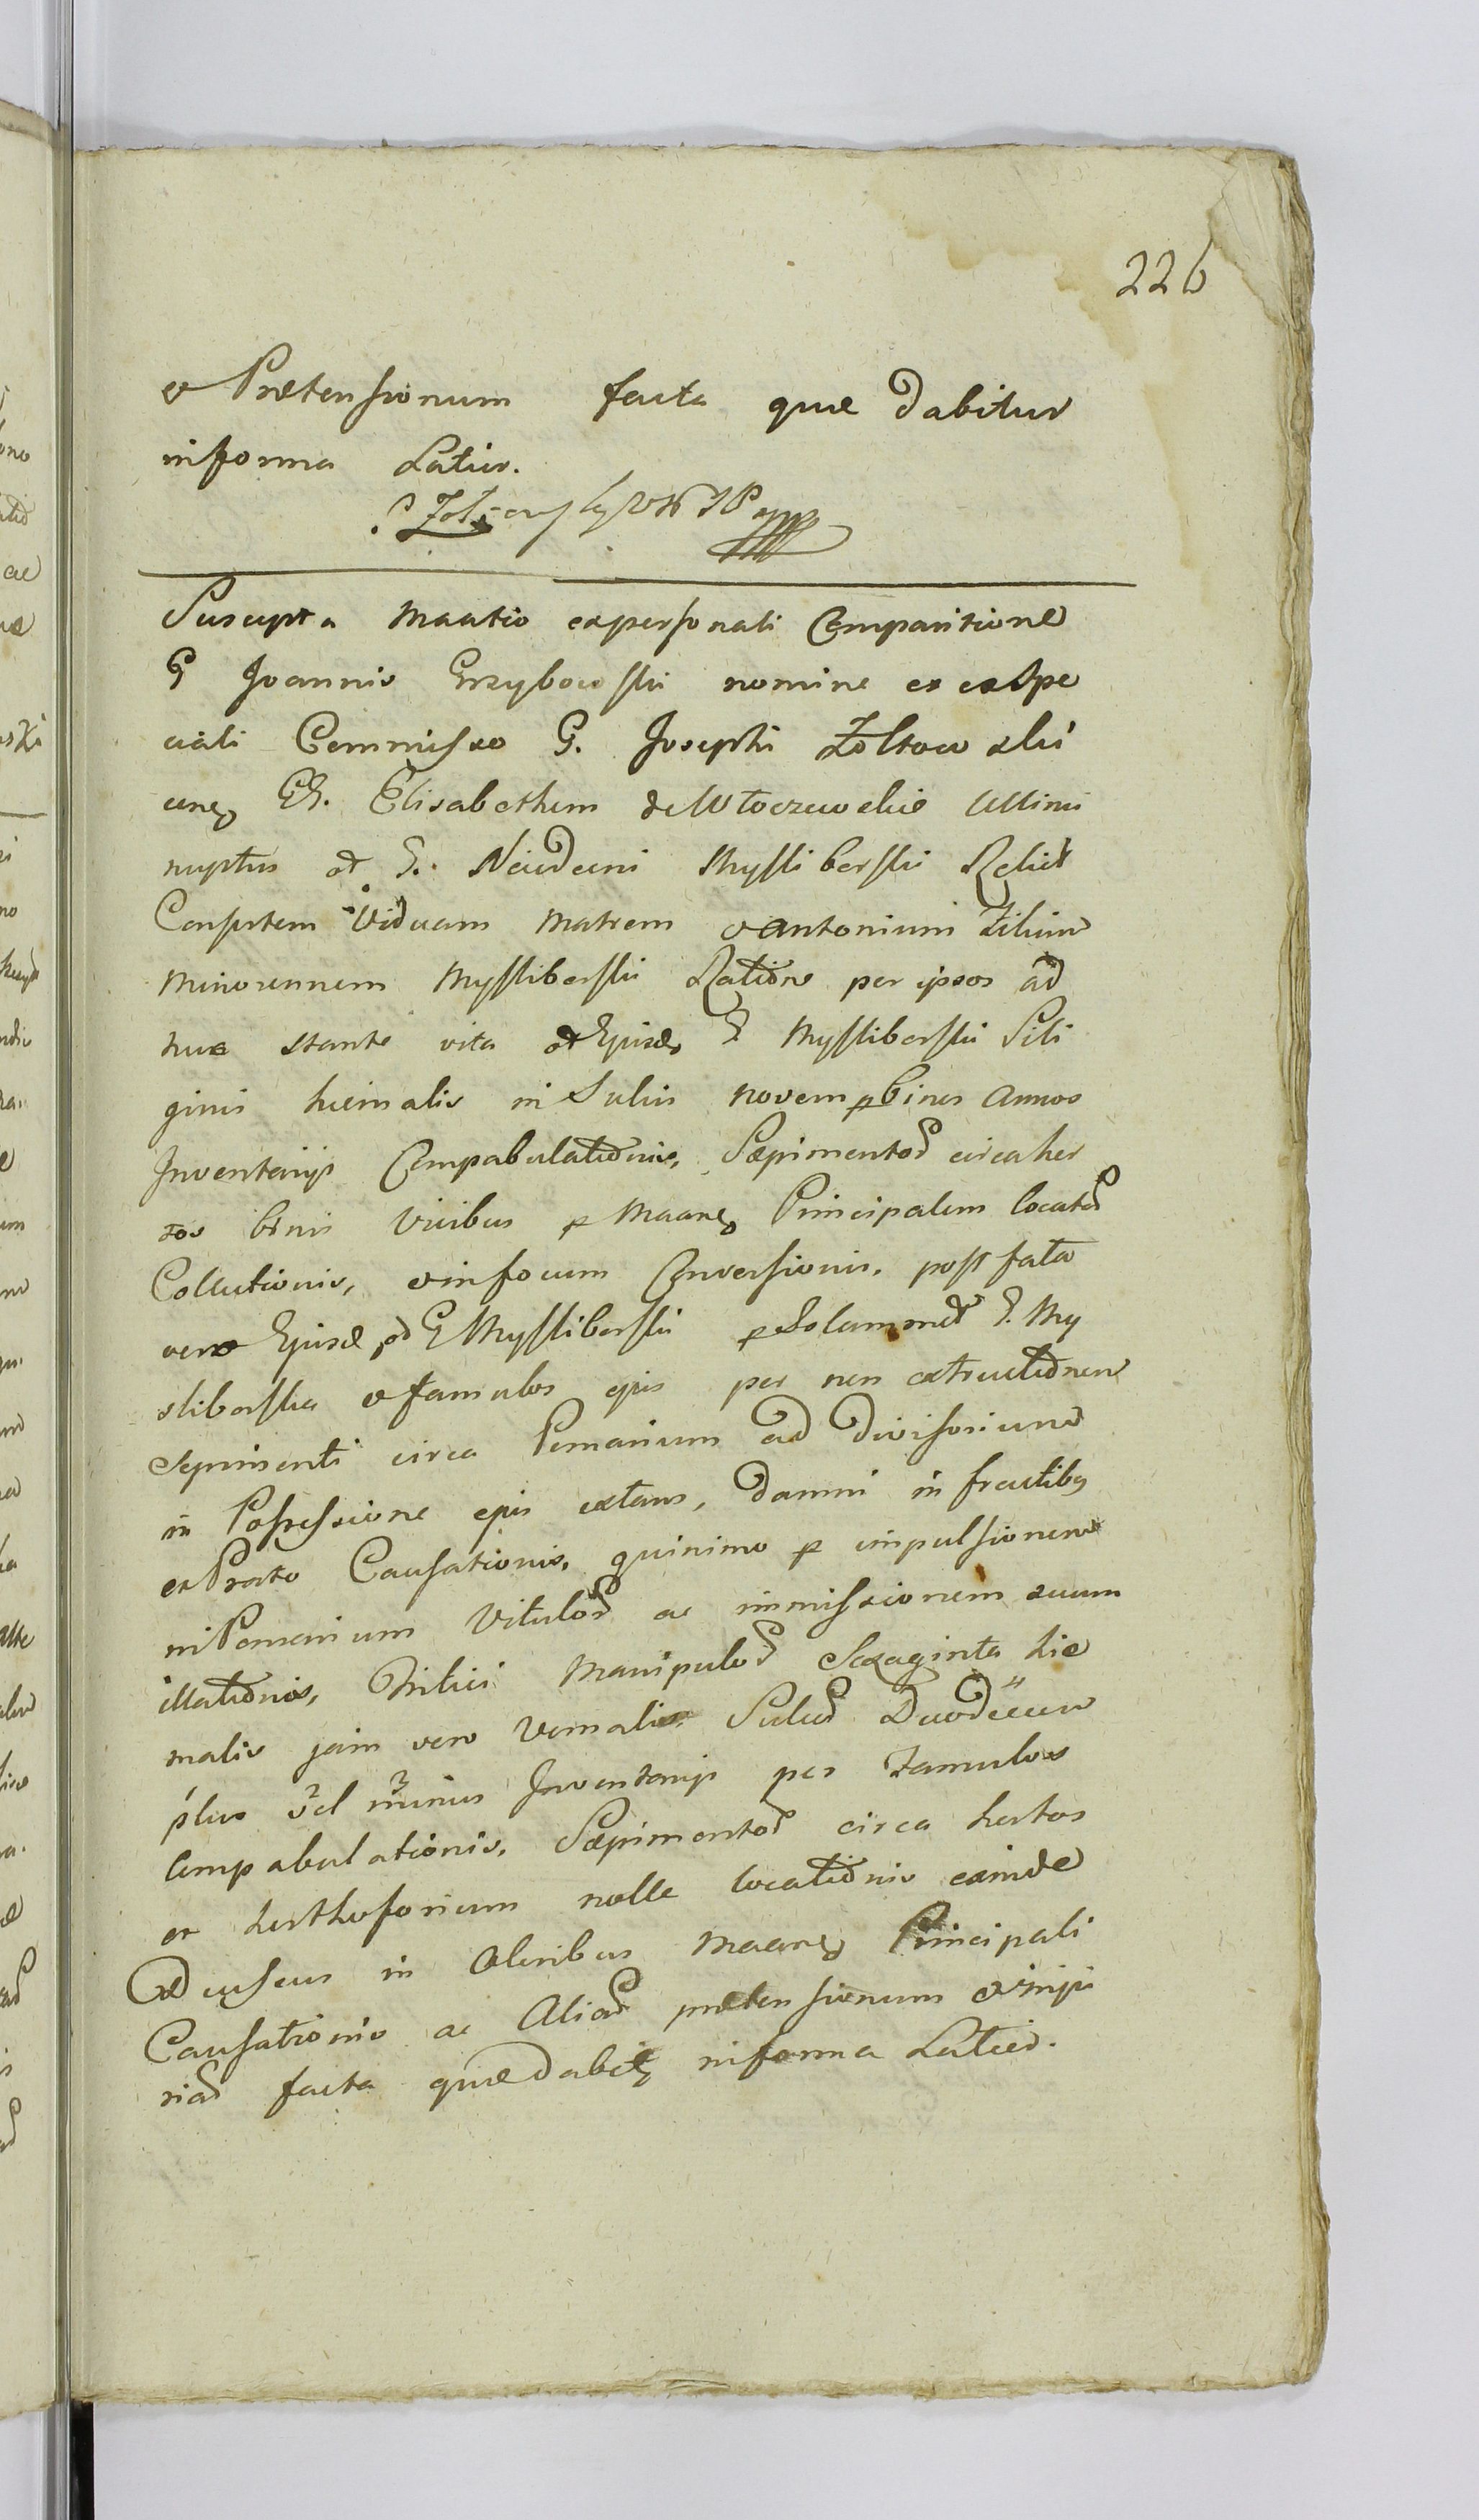 226
et Prætensionum facta quæ dabitur
in forma Latius.
Suscepta Maatio ex personali Comparitione
G Joannis Grzybowski nomine et ex Spe
ciali Commisso G. Josephi Zołtowski
cunq GG. Elisabetham de Włoczewskie Ultimi
nuptus et G. Mysliborski Relict
Consortem Viduam Matrem et Antonium Filium
Minorennem Mysliborskii Ratione per ipsos ad
huc stante vita G Mysliborski Sili
ginis hiemalis in Sulcis novem p binos Annos
Inventarys Compabulationis, Sæpimentor circa hor
tos binis Vicibus p Principalem locator
Collutionis, et in focum Conversionis, post fata
vero G Mysliborski p Solammet G. My
sliborska et famulos ejus per non extructionem
Sepimenti circa Pomarium ad Divisorium
in Possessione ejus extans, Damni in fructibq
et Prato Causationis, quinimo p impulsionem
in Pomarium Vitulor ac immissionem suum
illationis, Tritici Manipulor Sexaginta hie
malis jam vero Vernalis Sulcor Duodecim
plus vel minus Inventarys per Famulos
Compabulationis, Sæpimentor circa hortos
et horthosorium nolle locationis exinde
in Oleribus Principali
Causationis ac Aliar prætensionum et inju
riar facta quæ dabitq in forma Latius.